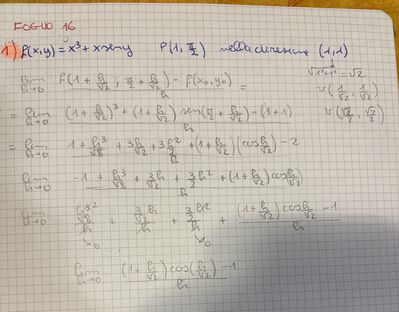 FOGLIO 16
1) f(x,y) = x³ + x seny P(1, π/2) nella direzione (1,1)
lim h→0 f(1 + h/√2 ; π/2 + h/√2) - f(x₀,y₀) / h = √1²+1² = √2
v(1/√2, 1/√2)
= lim h→0 (1 + h/√2)³ + (1 + h/√2) sen(π/2 + h/√2) - (1+1) / h v(√2/2, √2/2)
= lim h→0 1 + h³/√8 + 3h/√2 + 3h²/2 + (1 + h/√2)(cos h/√2) - 2 / h
lim h→0 -1 + h³/√8 + 3h/√2 + 3/2 h² + (1 + h/√2) cos h/√2 / h
lim h→0 h³/√8 / h + 3/√2 h / h + 3/2 h² / h + (1 + h/√2) cos h/√2 - 1 / h
↘0 ↘0
lim h→0 (1 + h/√2) cos(h/√2) - 1 / h